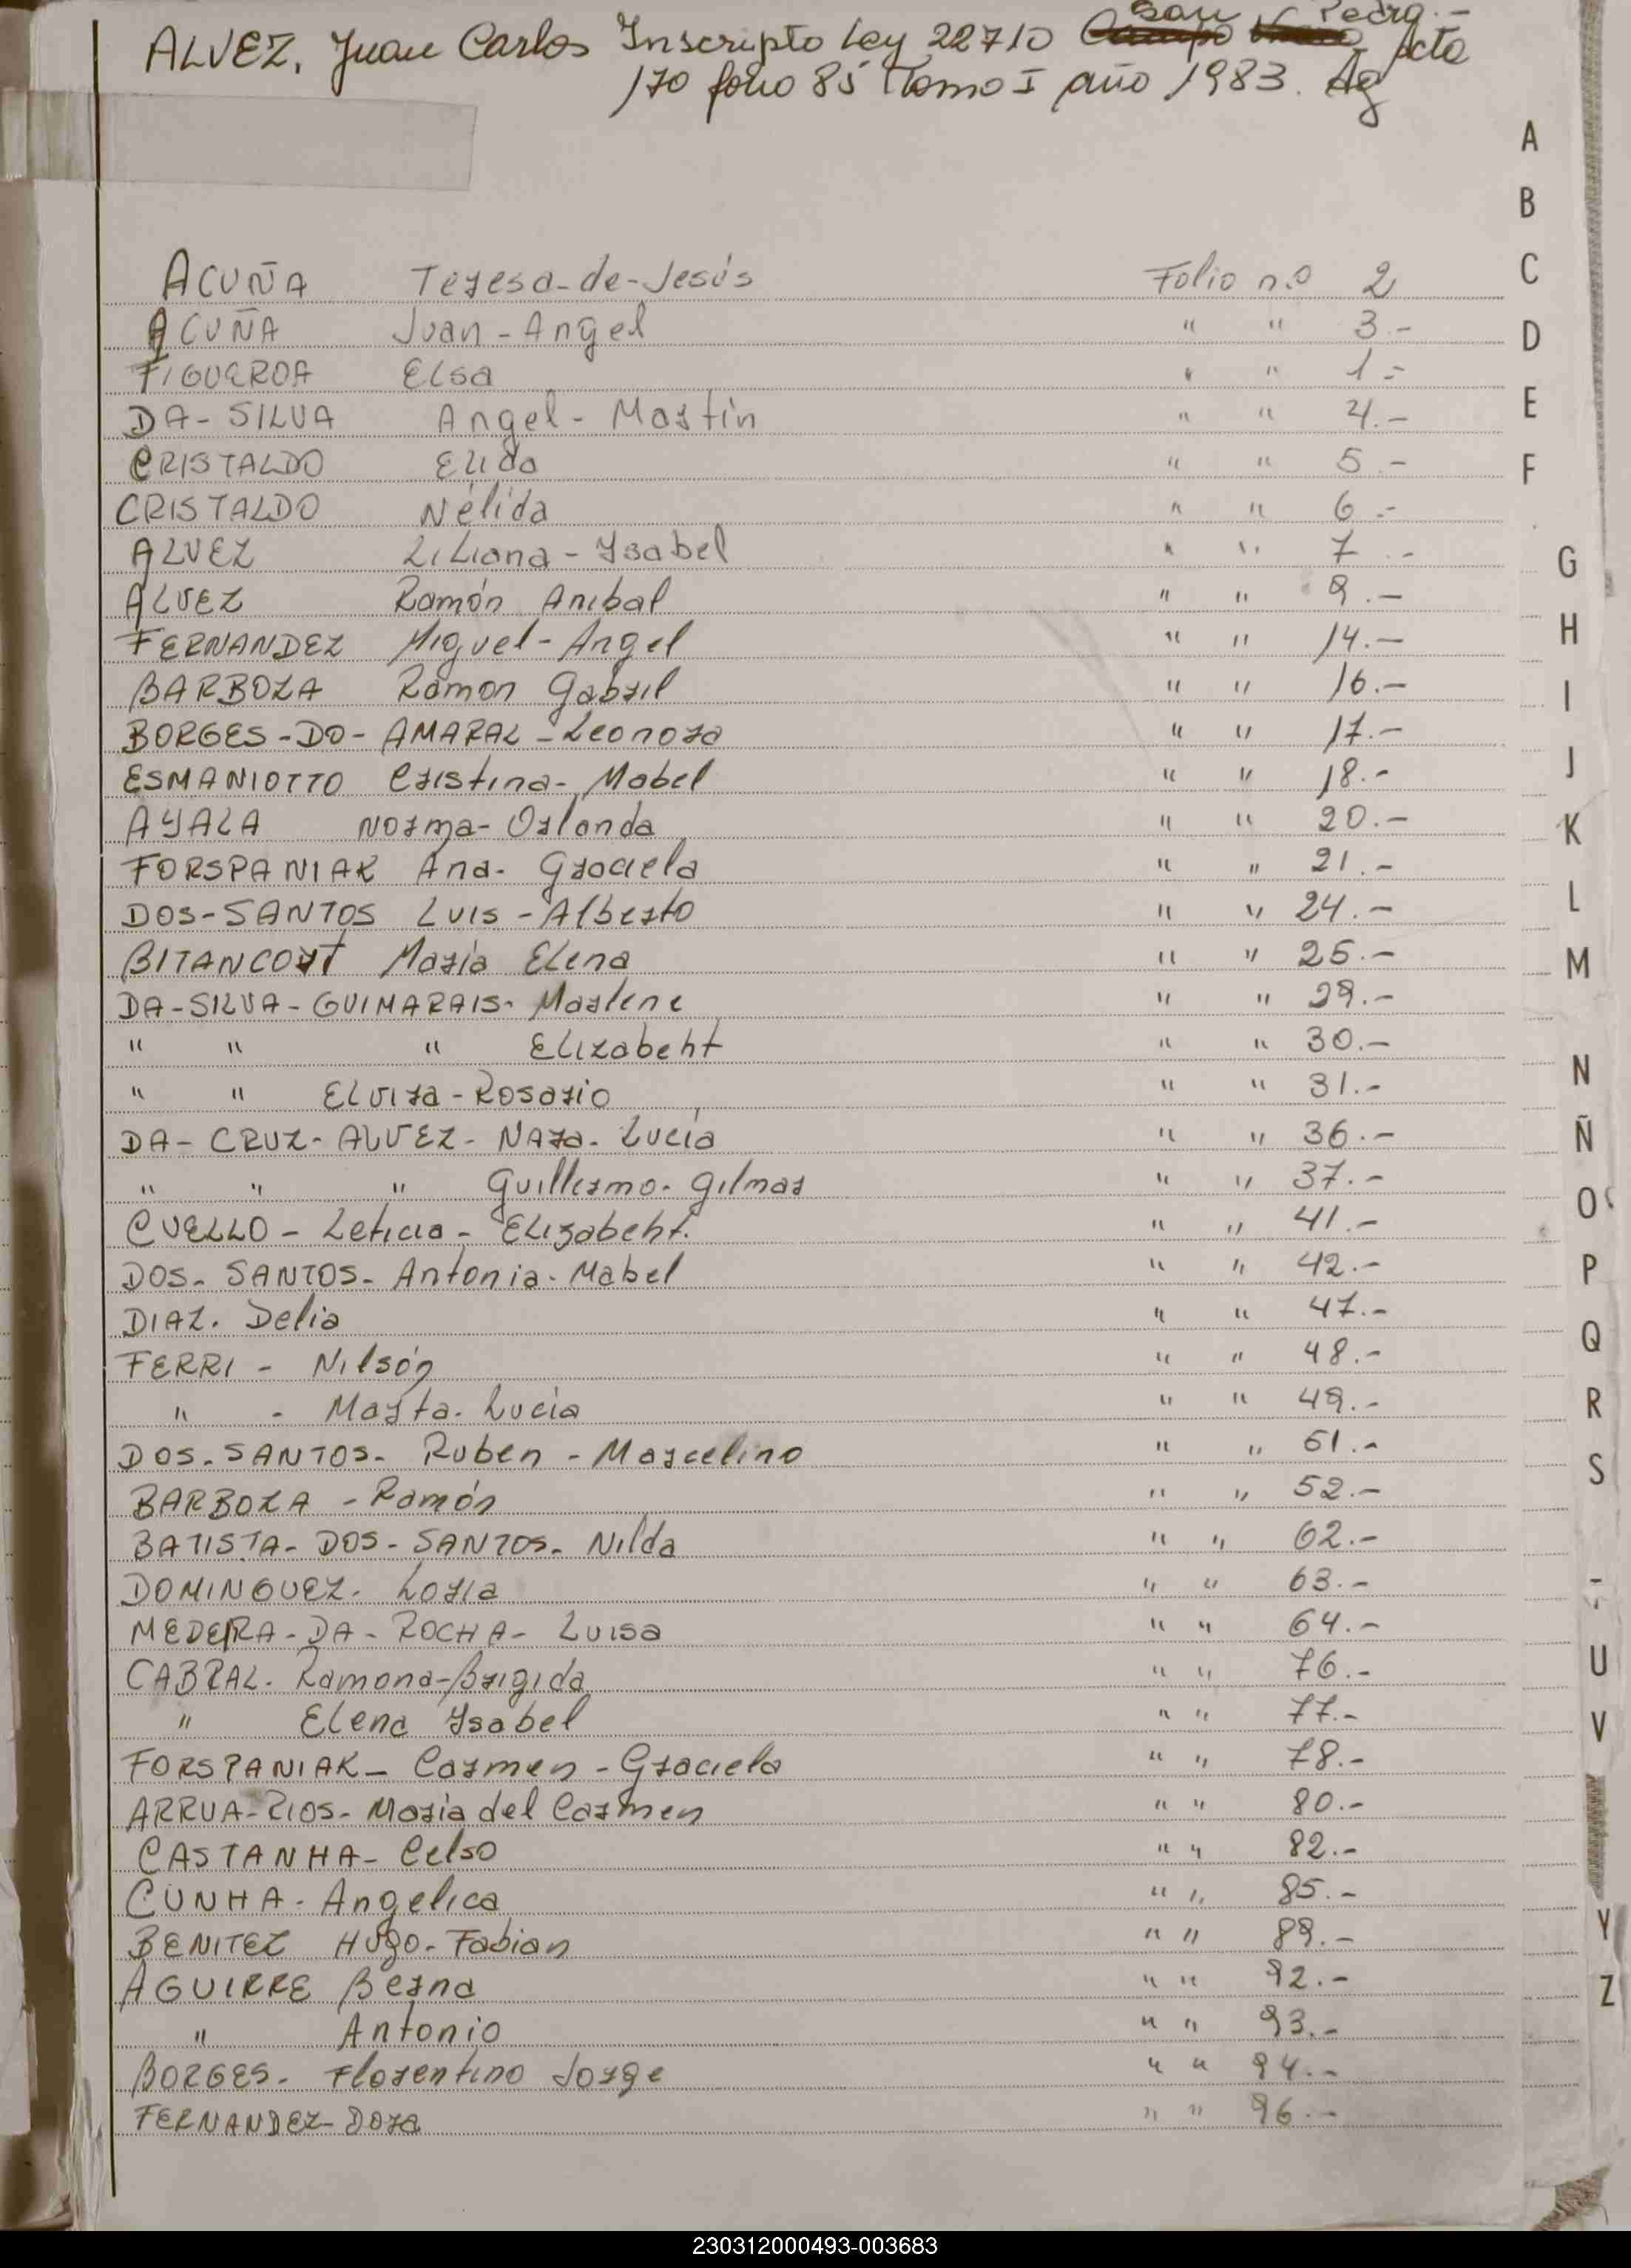 San Pedro.-
ALVEZ, Juan Carlos Inscripto Ley 22710 Acta
170 folio 85 Tomo I año 1983.
A
B
C
D
E
F
G
H
I
J
K
L
M
N
Ñ
O
P
Q
R
S
U
V
Y
Z
ACUÑA Teresa-de-Jesús Folio n.o 2
ACUÑA Juan-Angel " " 3.-
FIGUEROA Elsa " " 1.-
DA-SILVA Angel-Martín " " 4.-
CRISTALDO Elida " " 5.-
CRISTALDO Nélida " " 6.-
ALVEZ Liliana-Ysabel " " 7.-
ALVEZ Ramón Anibal " " 9.-
FERNANDEZ Miguel-Angel " " 14.-
BARBOZA Ramon Gabril " " 16.-
BORGES-DO-AMARAL-Leonora " " 17.-
ESMANIOTTO Cristina-Mabel " " 18.-
AYALA Norma-Orlanda " " 20.-
FORSPANIAK Ana-Graciela " " 21.-
DOS-SANTOS Luis-Alberto " " 24.-
BITANCOrT María Elena " " 25.-
DA-SILVA-GUIMARAIS-Marlene " " 29.-
" " " Elizabeht " " 30.-
" " Elvira-Rosario " " 31.-
DA-CRUZ-ALVEZ-Nara-Lucía " " 36.-
" " " Guillermo-Gilmar " " 37.-
CUELLO-Leticia-Elizabeht. " " 41.-
DOS-SANTOS-Antonia-Mabel " " 42.-
DIAZ. Delia " " 47.-
FERRI - Nilsón " " 48.-
" - Marta-Lucía " " 49.-
DOS-SANTOS-Ruben-Marcelino " " 51.-
BARBOZA-Ramón " " 52.-
BATISTA-DOS-SANTOS-Nilda " " 62.-
DOMINGUEZ-Loria " " 63.-
MEDEIRA-DA-ROCHA-Luisa " " 64.-
CABRAL-Ramona-Brigida " " 76.-
" Elena Ysabel " " 77.-
FORSPANIAK-Carmen-Graciela " " 78.-
ARRUA-RIOS-Maria del Carmen " " 80.-
CASTANHA-Celso " " 82.-
CUNHA-Angelica " " 85.-
BENITEZ Hugo-Fabian " " 89.-
AGUIRRE Berna " " 92.-
" Antonio " " 93.-
BORGES-Florentino Jorge " " 94.-
FERNANDEZ-Dora " " 96.-
230312000493-003683